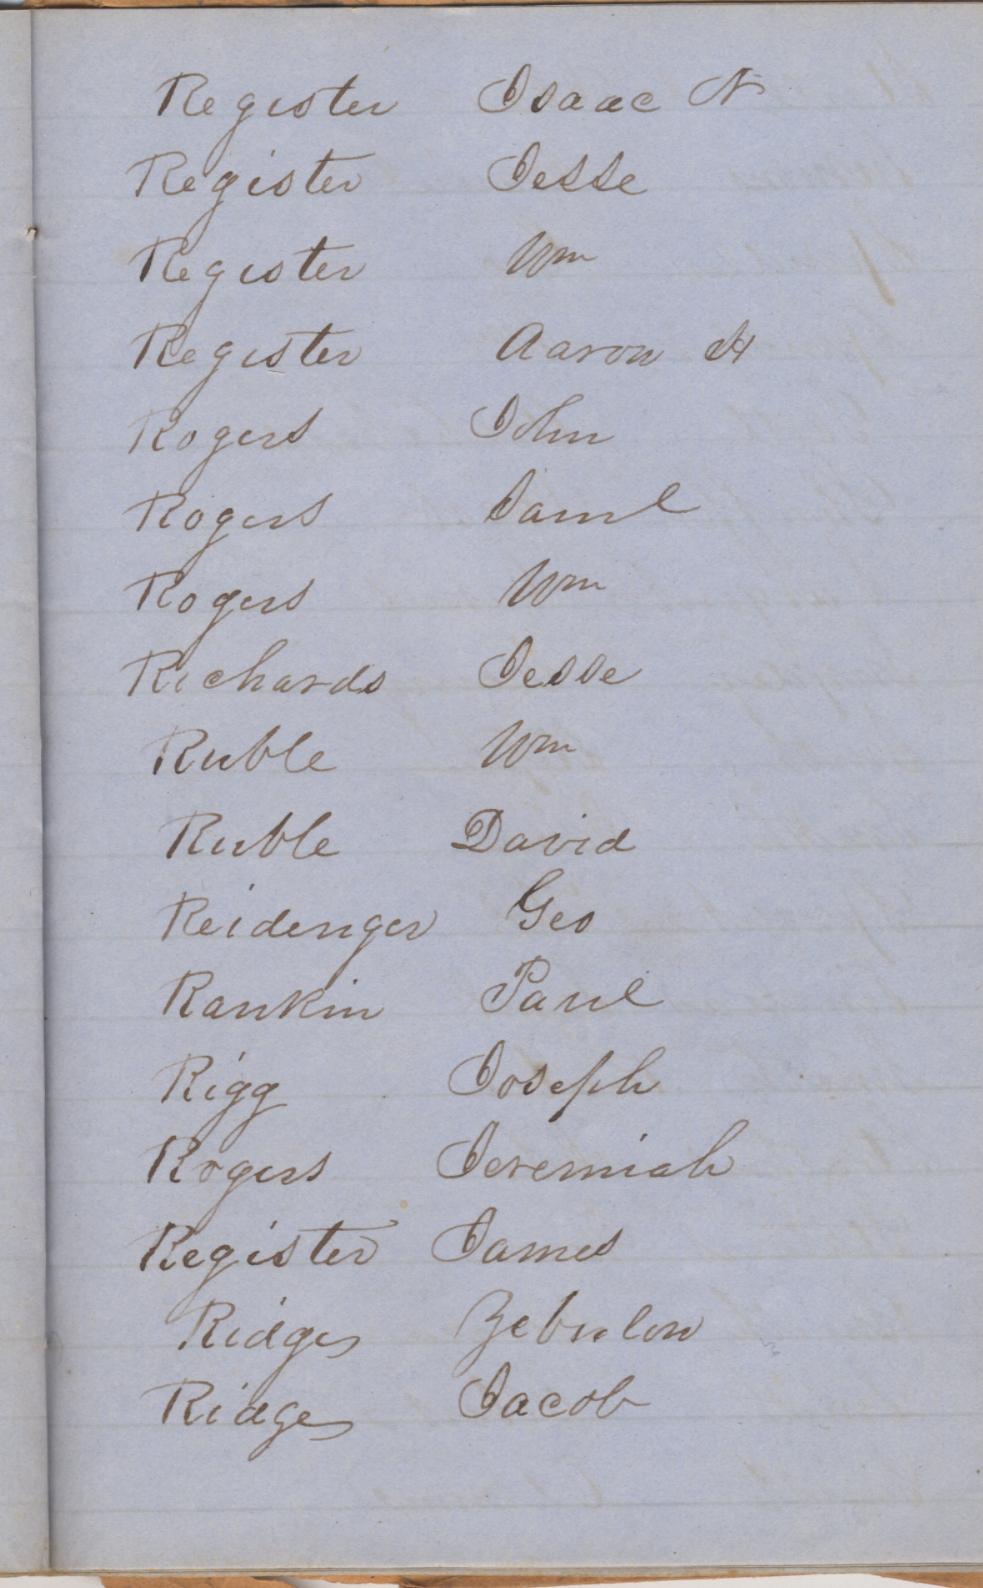 Register Isaac N
Register Jesse
Register Wm
Register Aaron H
Rogers John
Rogers Saml
Rogers Wm
Richards Jesse
Ruble Wm
Ruble David
Reidenger Geo
Rankin Paul
Rigg Joseph
Rogers Jeremiah
Register James
Ridges Zebulon
Ridges Jacob